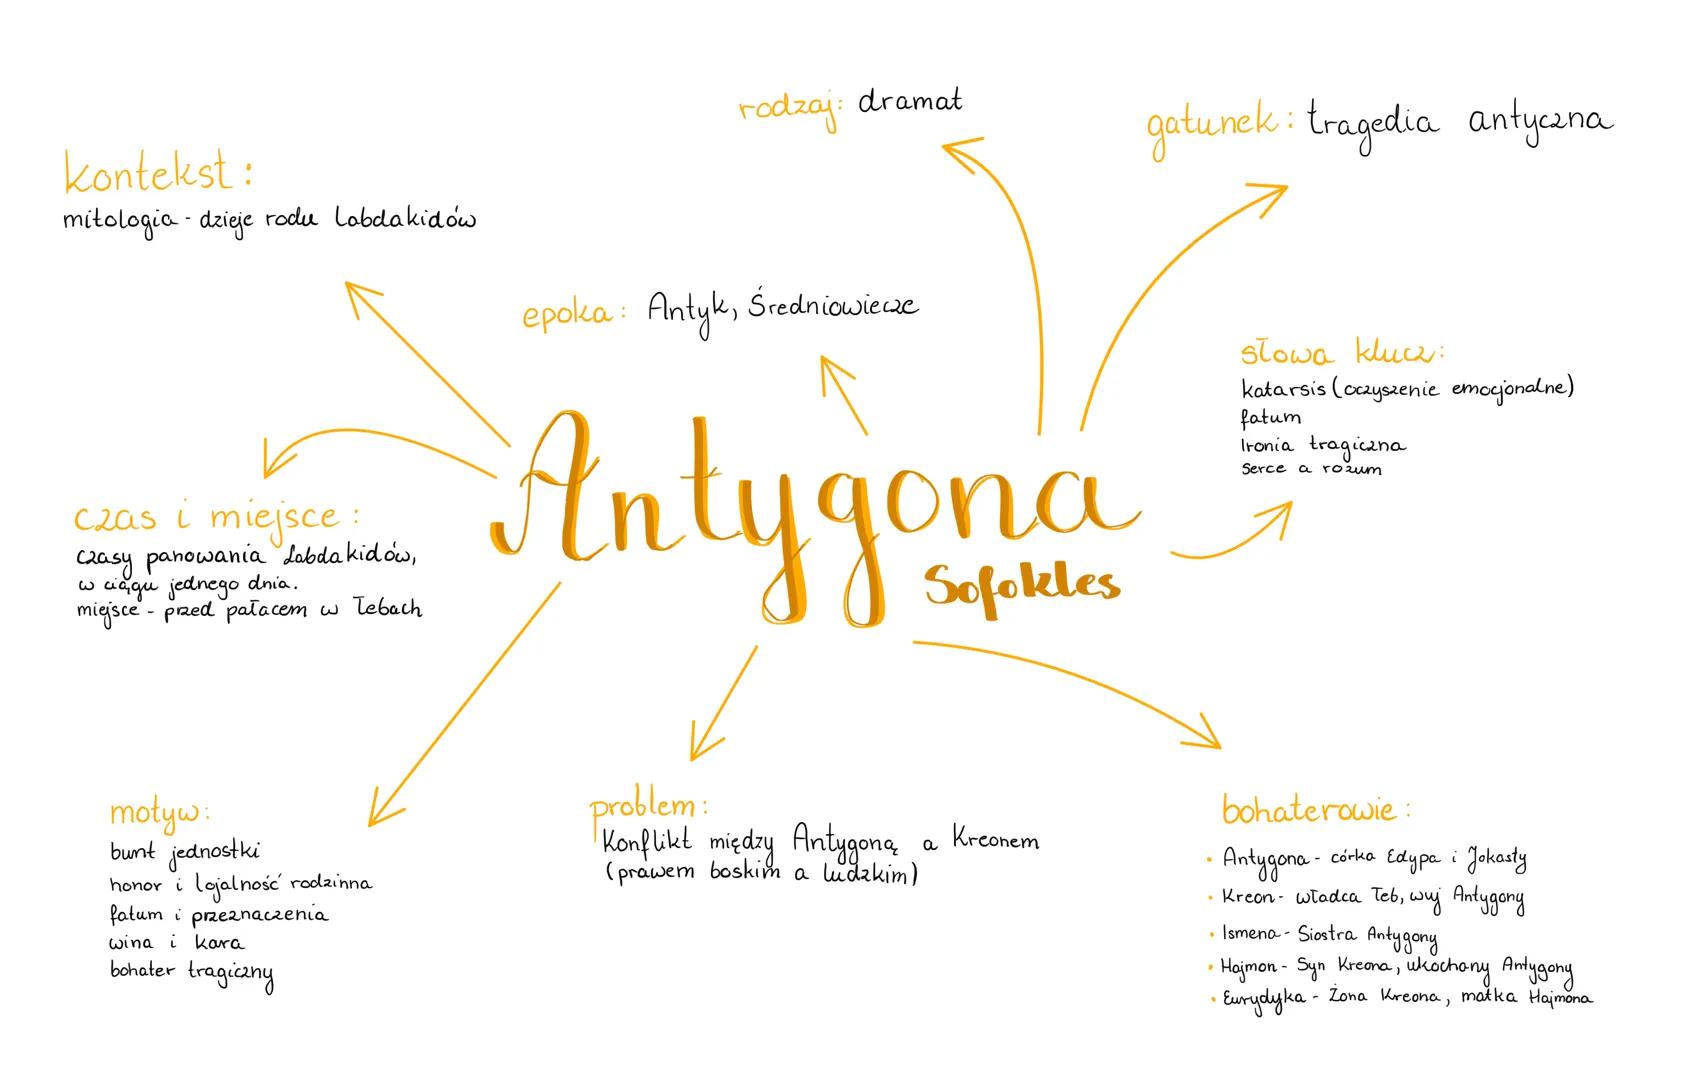 rodzaj: dramat
gatunek: tragedia antyczna
kontekst:
mitologia - dzieje rodu Labdakidów
epoka: Antyk, Średniowiecze
słowa klucz:
katarsis (oczyszenie emocjonalne)
fatum
Ironia tragiczna
serce a rozum
Antygona
Sofokles
czas i miejsce:
czasy panowania Labdakidów,
w ciągu jednego dnia.
miejsce - przed pałacem w Tebach
motyw:
bunt jednostki
honor i lojalność rodzinna
fatum i przeznaczenia
wina i kara
bohater tragiczny
problem:
Konflikt między Antygoną a Kreonem
(prawem boskim a ludzkim)
bohaterowie:
• Antygona - córka Edypa i Jokasty
• Kreon - władca Teb, wuj Antygony
• Ismena - Siostra Antygony
• Hajmon - Syn Kreona, ukochany Antygony
• Eurydyka - Żona Kreona, matka Hajmona